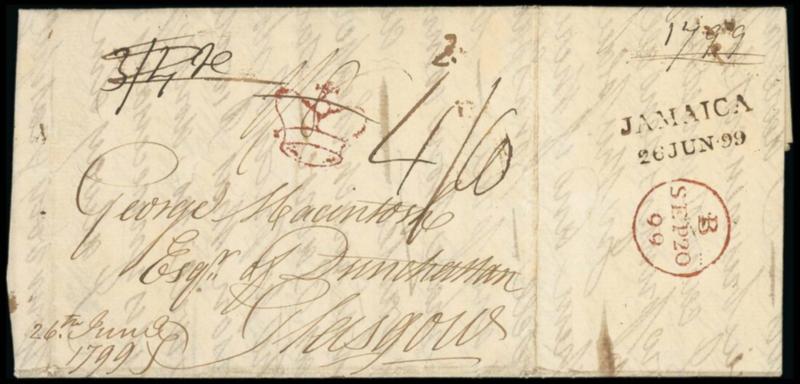 2.
4/6
George Macintosh
Esqr. of Dunchattan
Glasgow
26th June
1799
1799
JAMAICA
26 JUN 99
B
SEP 20
99